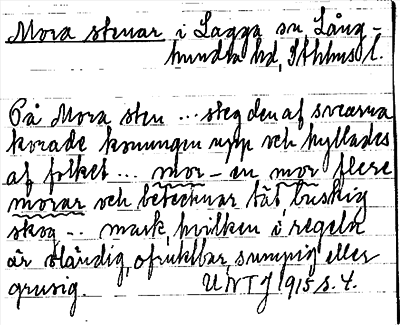 Mora stenar i Lagga sn Lång-
hundra hd, Sthlms l.
På Mora sten ... steg den af svearna
korade konungen upp och hyllades
af folket ... mor – en mor flere
morar och betecknar tät, buskig
skog ... mark, hvilken i regeln
är sländig, ofruktbar, sumpig eller
grusig. UNT 1915 s. 4.